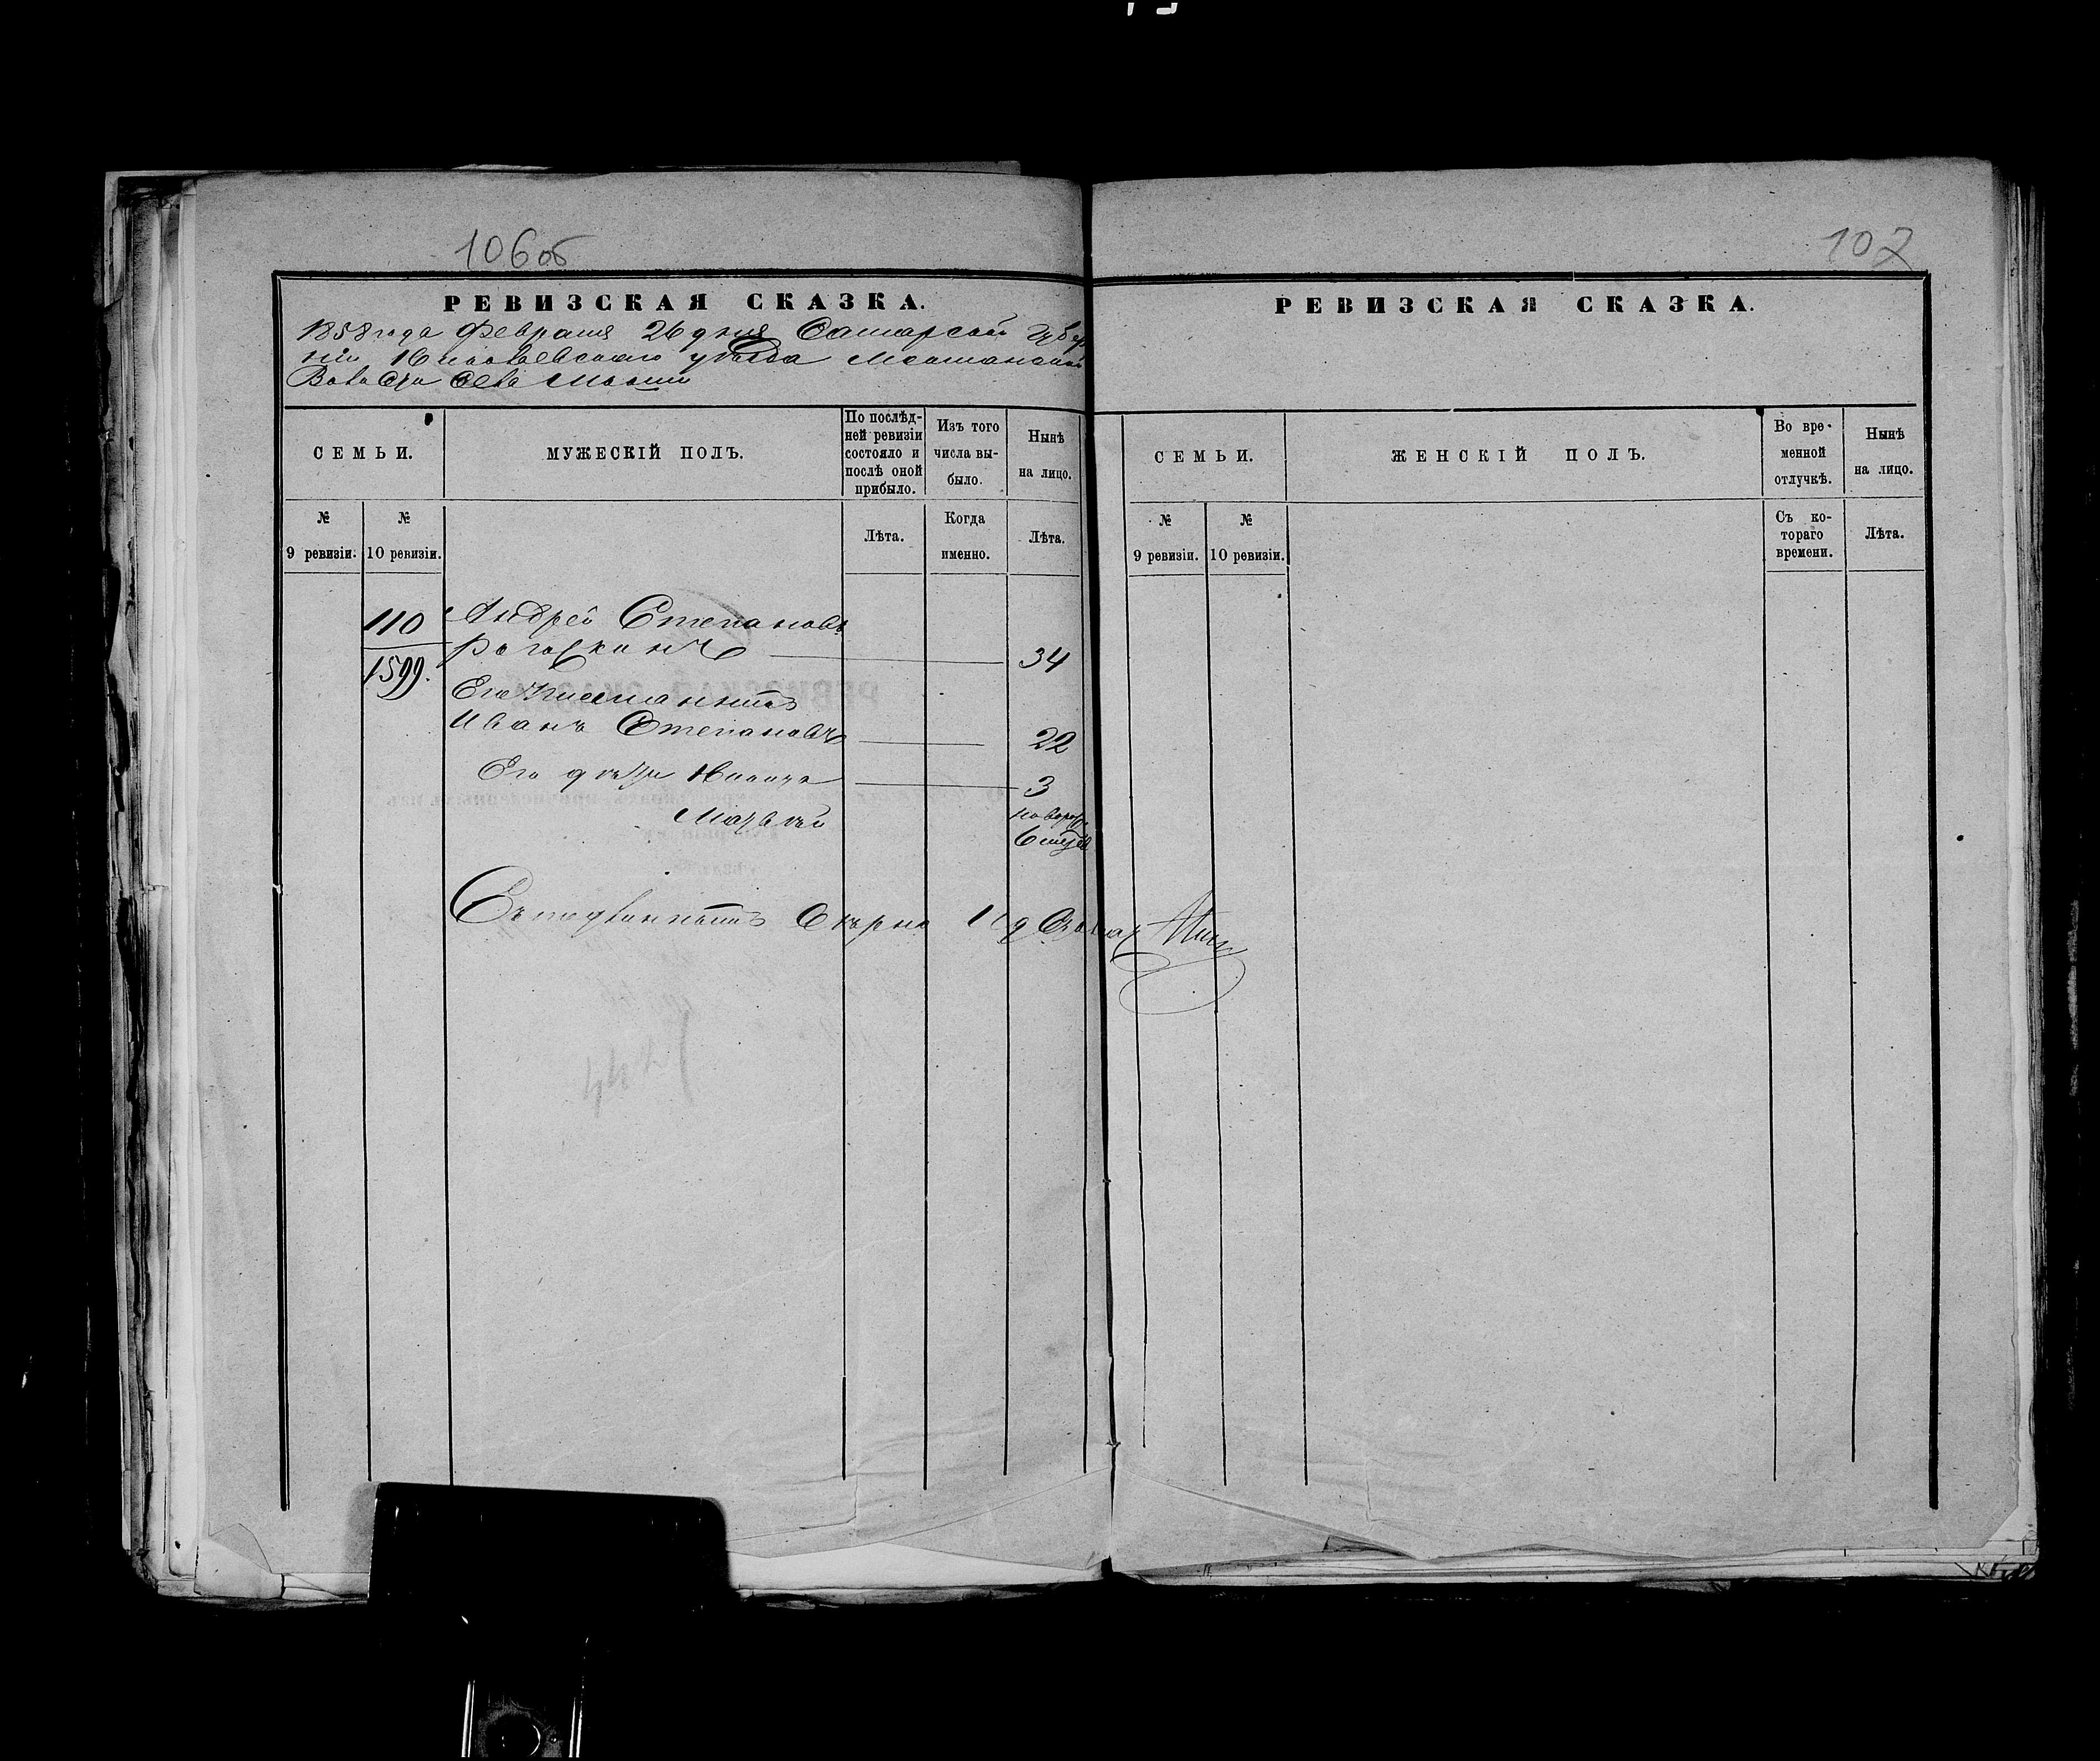 106об
РЕВИЗСКАЯ СКАЗКА.
1858 года Февраля 26 дня Самарской Губер
ніи Николаевскаго уѣзда
Волости Села
СЕМЬИ.
МУЖЕСКІЙ ПОЛЪ.
По послѣд-
ней ревизіи
состояло и
послѣ оной
прибыло.
Изъ того
числа вы-
было.
Нынѣ
на лицо.
№
9 ревизіи.
№
10 ревизіи.
Лѣта.
Когда
именно.
Лѣта.
110
1599.
Андрей Степановъ
34
Его
Иванъ Степановъ
22
Его дѣти
3
Матвѣй
новорож.
Съ вѣрно
107
РЕВИЗСКАЯ СКАЗКА.
СЕМЬИ.
ЖЕНСКІЙ ПОЛЪ.
Во вре-
менной
отлучкѣ.
Нынѣ
на лицо.
№
9 ревизіи.
№
10 ревизіи.
Съ ко-
тораго
времени.
Лѣта.